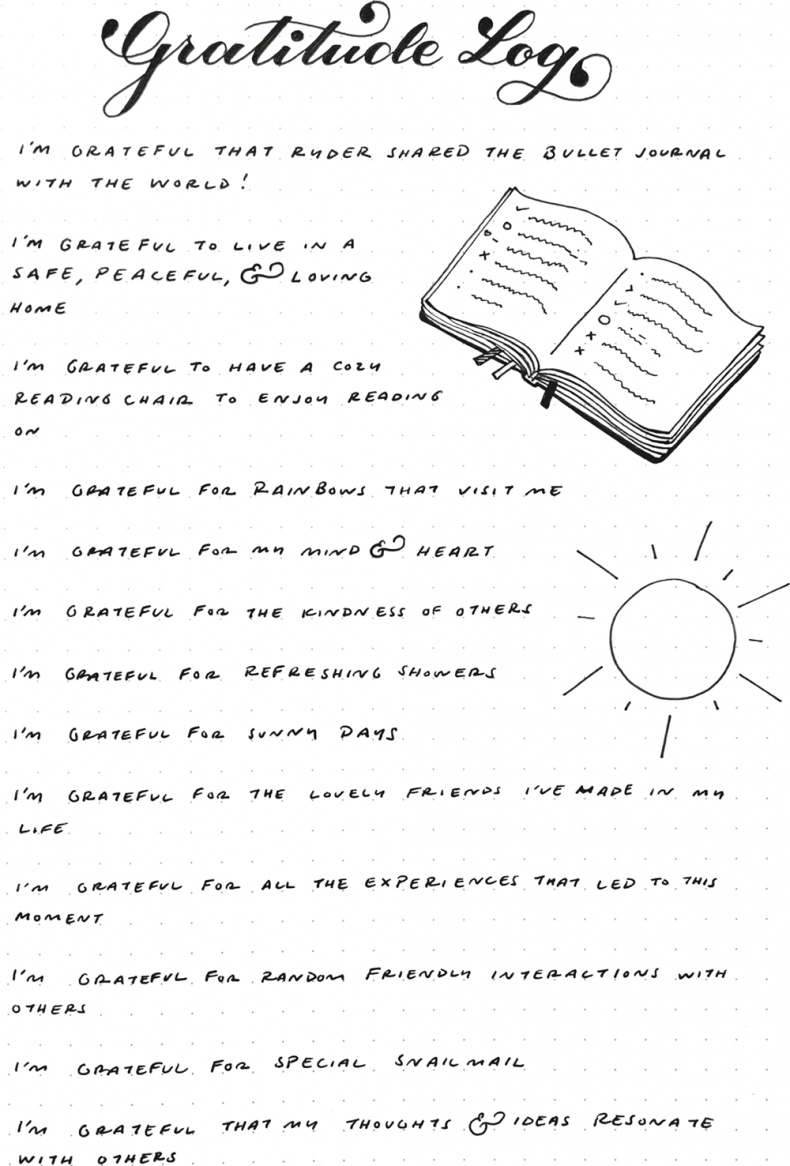 Gratitude Log
I'M GRATEFUL THAT RYDER SHARED THE BULLET JOURNAL
WITH THE WORLD!
I'M GRATEFUL TO LIVE IN A
SAFE, PEACEFUL, & LOVING
HOME
I'M GRATEFUL TO HAVE A COZY
READING CHAIR TO ENJOY READING
ON
I'M GRATEFUL FOR RAINBOWS THAT VISIT ME
I'M GRATEFUL FOR MY MIND & HEART
I'M GRATEFUL FOR THE KINDNESS OF OTHERS
I'M GRATEFUL FOR REFRESHING SHOWERS
I'M GRATEFUL FOR SUNNY DAYS
I'M GRATEFUL FOR THE LOVELY FRIENDS I'VE MADE IN MY
LIFE
I'M GRATEFUL FOR ALL THE EXPERIENCES THAT LED TO THIS
MOMENT
I'M GRATEFUL FOR RANDOM FRIENDLY INTERACTIONS WITH
OTHERS
I'M GRATEFUL FOR SPECIAL SNAIL MAIL
I'M GRATEFUL THAT MY THOUGHTS & IDEAS RESONATE
WITH OTHERS